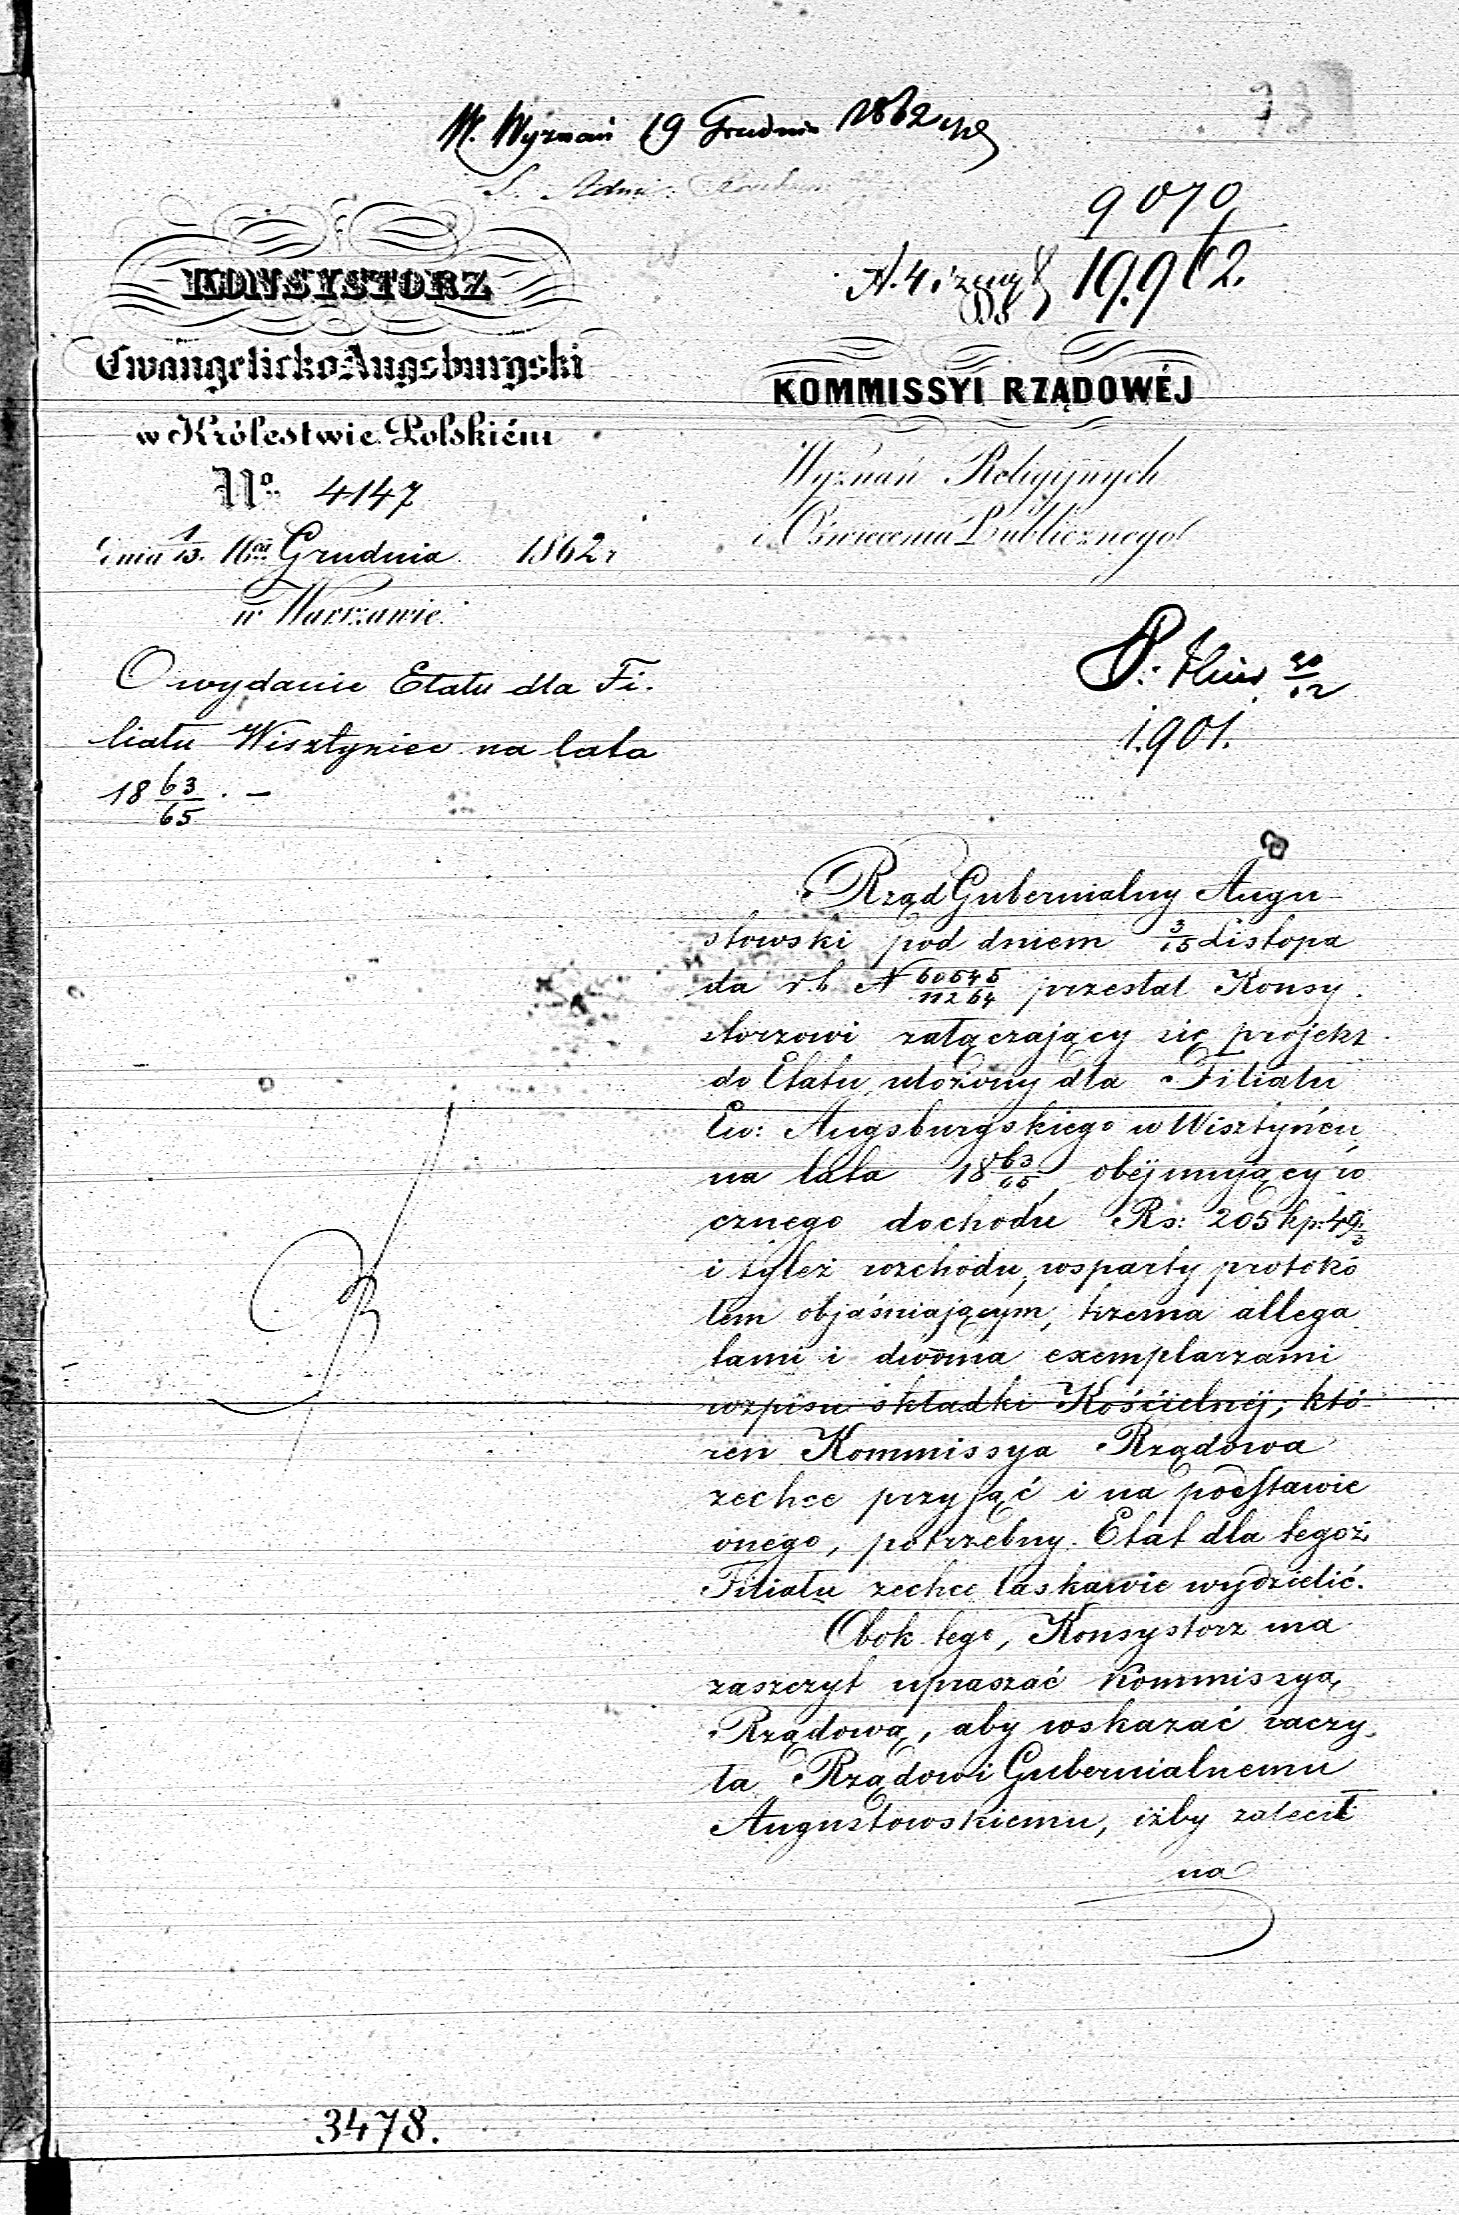 W. Wyznań 19 Grudnia 1862
9070
19.9 62.
KONSYSTORZ
Ewangelicko Augsburgski
w Królestwie Polskiém
No. 4147
dnia 1/13. Grudnia 1862 r
w Warszawie.
O wydanie Etatu dla Fi-
liału Wisztyniec na lata
18 63/65. —
KOMMISSYI RZĄDOWÉJ
Wyznań Religijnych
i Oświecenia Publicznego
20/12
1.901.
Rząd Gubernialny Augu-
stowski pod dniem 3/15 Listopa
da r. b. N 60545/11264 przesłał Konsy-
storzowi załączający się projekt
do Etatu, ułożony dla Filiału
Ew: Augsburgskiego w Wisztyńcu
na lata 18 63/65, obejmujący ro
cznego dochodu Rs: 205 kp: 49
i tyleż rozchodu, wsparty protokó
łem objaśniającym, trzema allega
tami i dwoma exemplarzami
rozpisu składki Kościelnéj, któ-
ren Kommissya Rządowa
zechce przyjąć i na podstawie
onego, potrzebny Etat dla tegoż
Filiału zechce łaskawie wydzielić.
Obok tego, Konsystorz ma
zaszczyt upraszać Kommissyą
Rządową, aby wskazać raczy-
ła Rządowi Gubernialnemu
Augustowskiemu, iżby zalecił
na
3478.